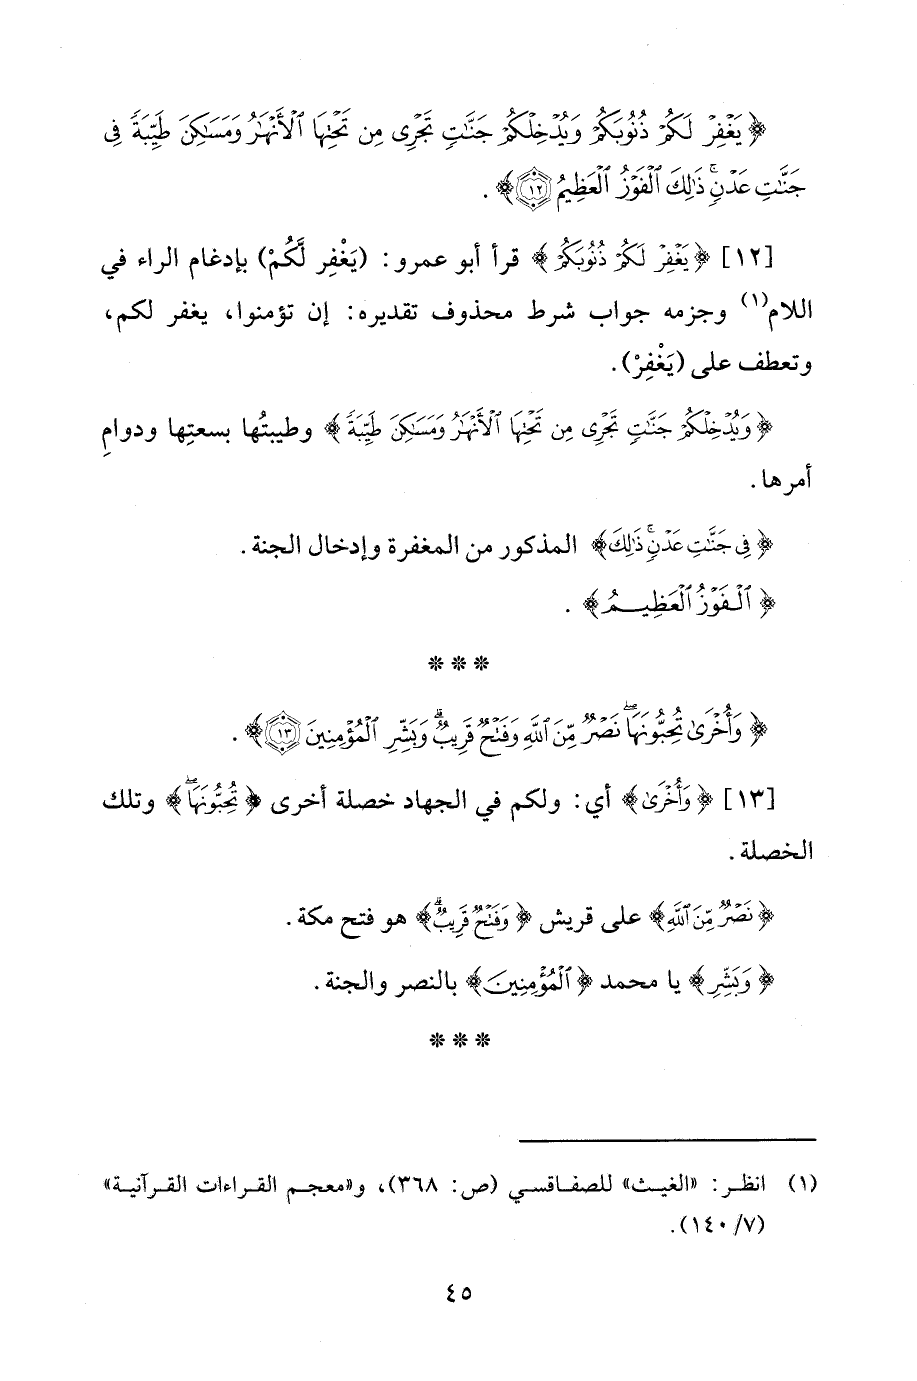 ﴿ يَغْفِرْ لَكُمْ ذُنُوبَكُمْ وَيُدْخِلْكُمْ جَنَّٰتٍ تَجْرِى مِن تَحْتِهَا ٱلْأَنْهَٰرُ وَمَسَٰكِنَ طَيِّبَةً فِى
جَنَّٰتِ عَدْنٍ ۚ ذَٰلِكَ ٱلْفَوْزُ ٱلْعَظِيمُ ۝١٢ ﴾ .
[١٢] ﴿ يَغْفِرْ لَكُمْ ذُنُوبَكُمْ ﴾ قرأ أبو عمرو: (يَغْفِر لَّكُمْ) بإدغام الراء في
اللام(١) وجزمه جواب شرط محذوف تقديره: إن تؤمنوا، يغفر لكم،
وتعطف على (يَغْفِرْ).
﴿ وَيُدْخِلْكُمْ جَنَّٰتٍ تَجْرِى مِن تَحْتِهَا ٱلْأَنْهَٰرُ وَمَسَٰكِنَ طَيِّبَةً ﴾ وطيبتُها بسعتِها ودوامِ
أمرها.
﴿ فِى جَنَّٰتِ عَدْنٍ ۚ ذَٰلِكَ ﴾ المذكور من المغفرة وإدخال الجنة.
﴿ ٱلْفَوْزُ ٱلْعَظِيمُ ﴾ .
* * *
﴿ وَأُخْرَىٰ تُحِبُّونَهَا ۖ نَصْرٌ مِّنَ ٱللَّهِ وَفَتْحٌ قَرِيبٌ ۗ وَبَشِّرِ ٱلْمُؤْمِنِينَ ۝١٣ ﴾ .
[١٣] ﴿ وَأُخْرَىٰ ﴾ أي: ولكم في الجهاد خصلة أخرى ﴿ تُحِبُّونَهَا ۖ ﴾ وتلك
الخصلة.
﴿ نَصْرٌ مِّنَ ٱللَّهِ ﴾ على قريش ﴿ وَفَتْحٌ قَرِيبٌ ۗ ﴾ هو فتح مكة.
﴿ وَبَشِّرِ ﴾ يا محمد ﴿ ٱلْمُؤْمِنِينَ ﴾ بالنصر والجنة.
* * *
(١) انظر: «الغيث» للصفاقسي (ص: ٣٦٨)، و«معجم القراءات القرآنية»
(٧/ ١٤٠).
٤٥